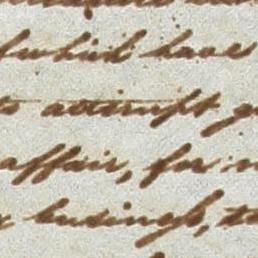 which have
to attempt
affair, for
business, to